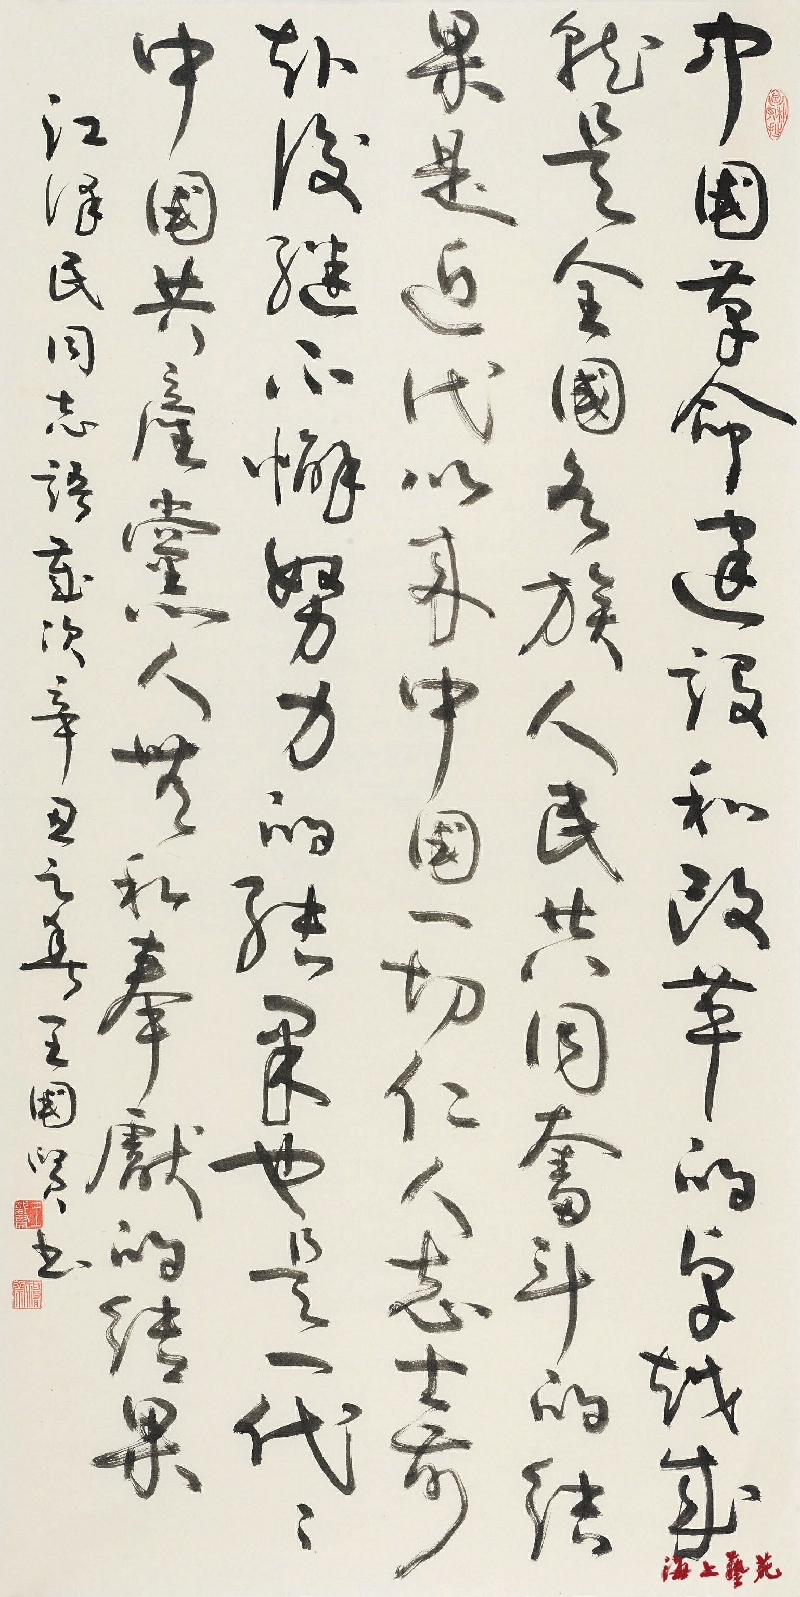 中國革命建設和改革的卓越成
就是全國各族人民共同奮斗的結
果是近代以來中國一切仁人志士前
赴後繼不懈努力的結果也是一代〻
中國共產黨人無私奉獻的結果
江澤民同志語歲次辛丑之春王國賢书
海上藝苑